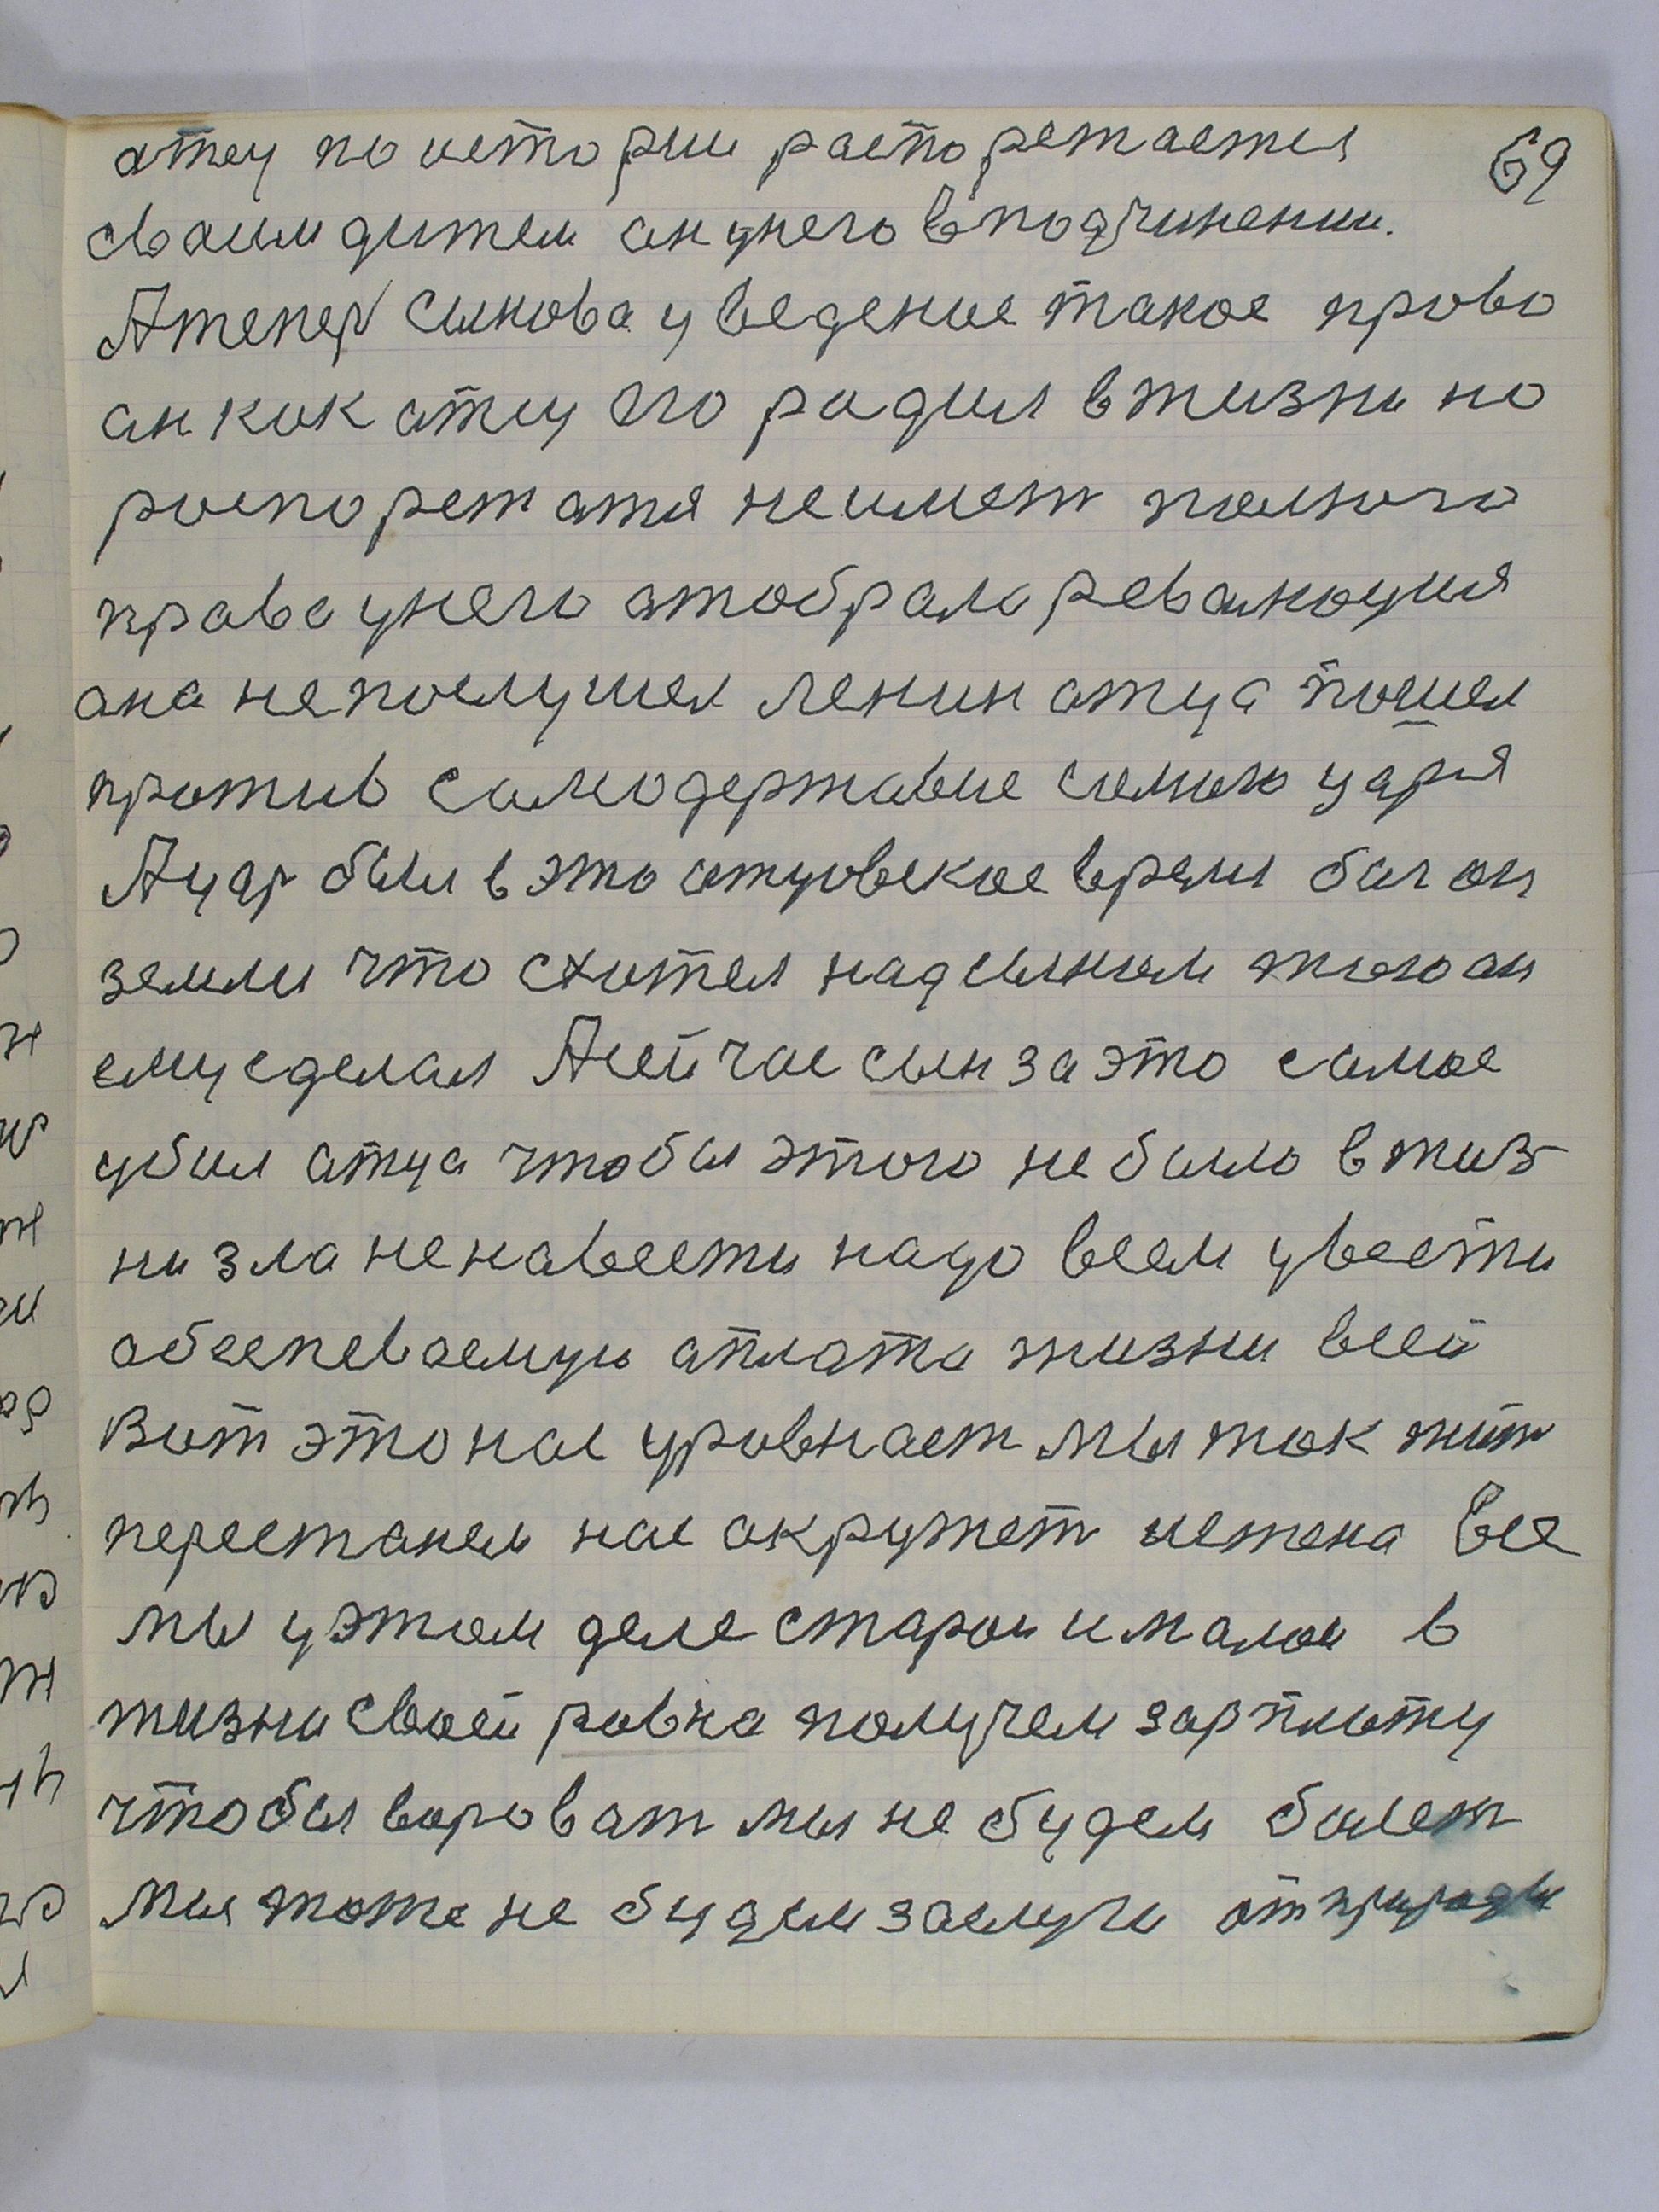 атец по истории распорежается 69
сваим дитем ан у него в подчинении.
А тепер сынова у ведение такое право
ан как атец его радил в жизни но
распорежатя не имеет полного
права у него атобраларевалюция
ана не послушел ленин атца пошел
против самодержавие самого царя
А цар был в это атцовское время бог он
земли что схотел над сыном того он
ему сделал А сейчас сын за это самое
убил атца чтобы этого не было в жиз
ни зла ненавести надо всем увести
абеспеваемую аплата жизни всей
Вот это нас уровнает мы так жит
перестанем нас окружет истена все
мы у этом деле старои и малои в
жизни своей ровна получем зарплату
чтобы вороват мы не будем болет
мы тоже не будем заслуги от природы